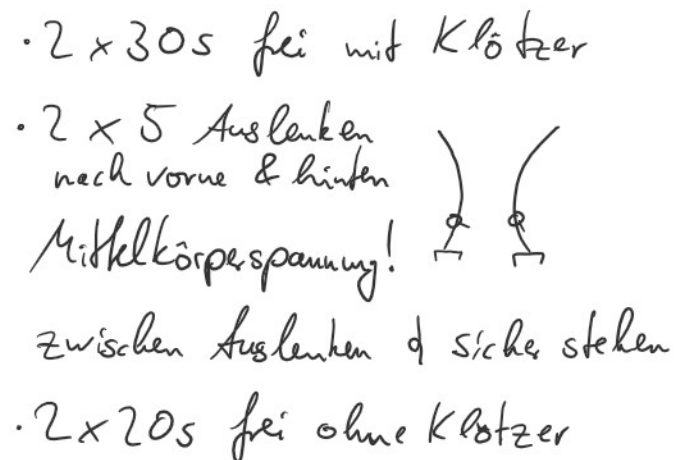 · 2 x 30s frei mit Klötzer
· 2 x 5 Auslenken
nach vorne & hinten
Mittelkörperspannung!
zwischen Auslenken sicher stehen
· 2 x 20s frei ohne Klötzer